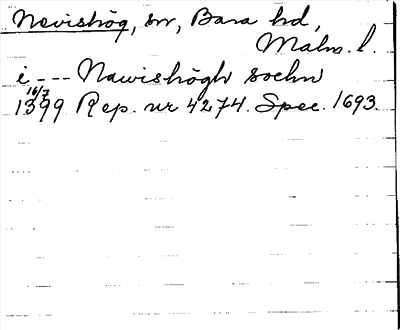 Nevishög, sn, Bara hd,
Malm. l.
i --- Nawishögh sochn
16/7
1399 Rep. nr 4274. Spec. 1693.